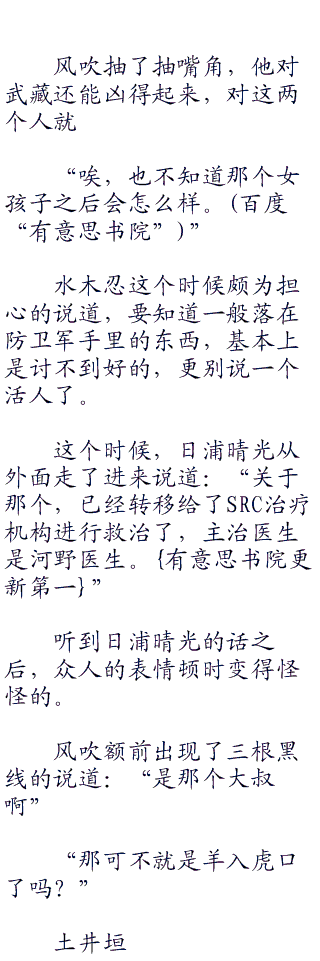 风吹抽了抽嘴角，他对
武藏还能凶得起来，对这两
个人就
“唉，也不知道那个女
孩子之后会怎么样。(百度
“有意思书院”)”
水木忍这个时候颇为担
心的说道，要知道一般落在
防卫军手里的东西，基本上
是讨不到好的，更别说一个
活人了。
这个时候，日浦晴光从
外面走了进来说道：“关于
那个，已经转移给了SRC治疗
机构进行救治了，主治医生
是河野医生。{有意思书院更
新第一}”
听到日浦晴光的话之
后，众人的表情顿时变得怪
怪的。
风吹额前出现了三根黑
线的说道：“是那个大叔
啊”
“那可不就是羊入虎口
了吗？”
土井垣